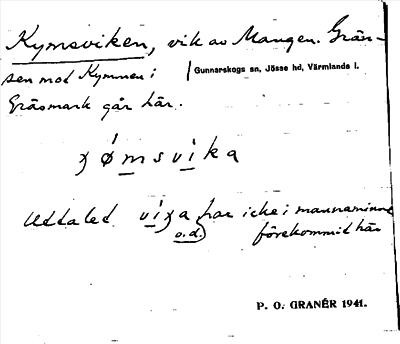 Kymsviken, vik av Mangen. Grän-
sen mot Kymmen i
Gunnarskogs sn, Jösse hd, Värmlands l.
Gräsmark går här.
ʒǿmsvíka
Uttalet víʒa har icke i mannaminne
o.d.
förekommit här
P. O. GRANÉR 1941.